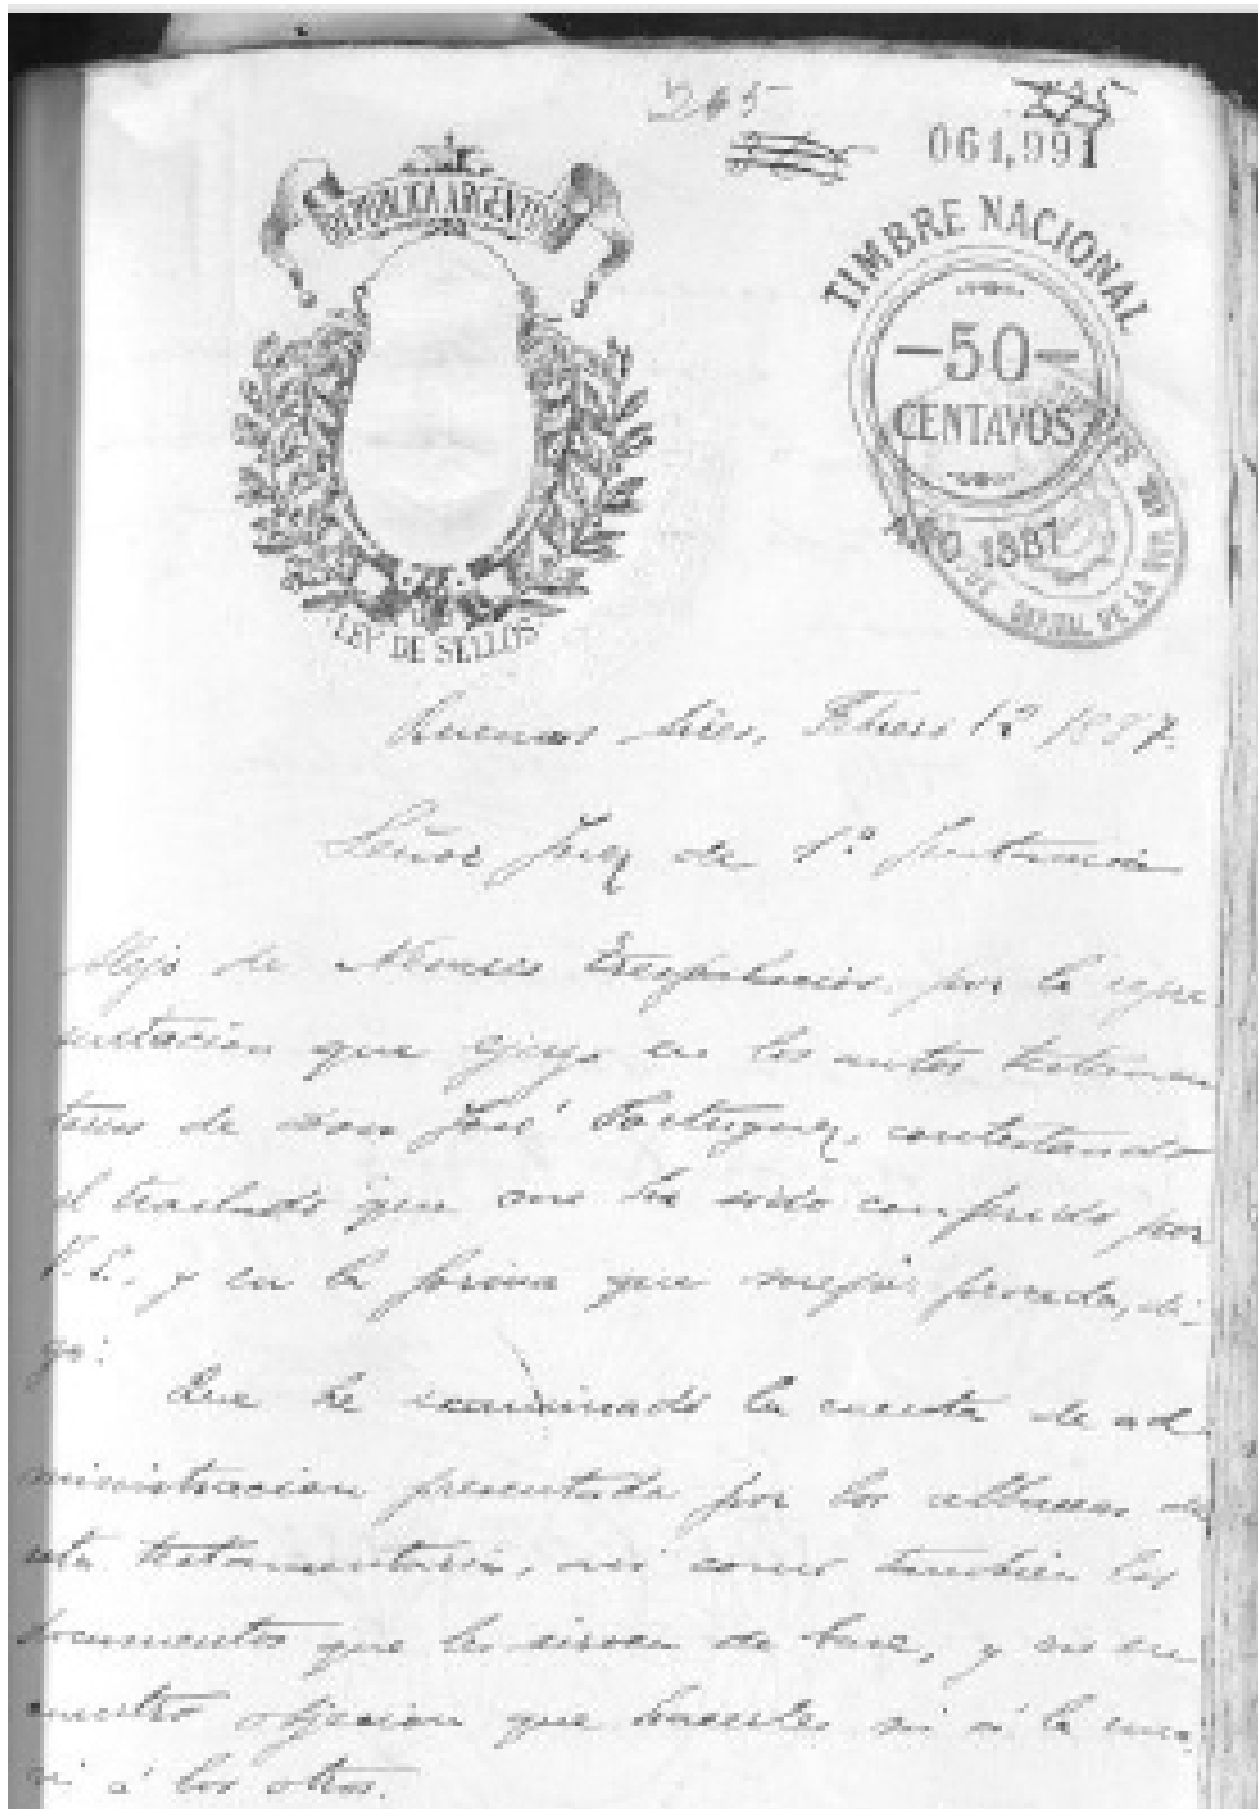 245
061,991
REPUBLICA ARGENTINA
TIMBRE NACIONAL
-50-
CENTAVOS
AÑO 1887
LEY DE SELLOS
CAPITAL DE LA
Buenos Aires, Febrero 1º 1887.
Señor Juez de 1ª Instancia
Alejo de Nevares por la repre
sentación que ejerzo en los autos testamen
tarios de don José contestando
el traslado que me ha sido conferido por
V.S. y en la forma que mejor proceda, di-
go:
Que he examinado la cuenta de ad
ministracion presentada por los albaceas de
esta testamentaría, así como también los
documentos que le sirven de base, y no en
cuentro objecion que hacerles ni á la una
ni á los otros.